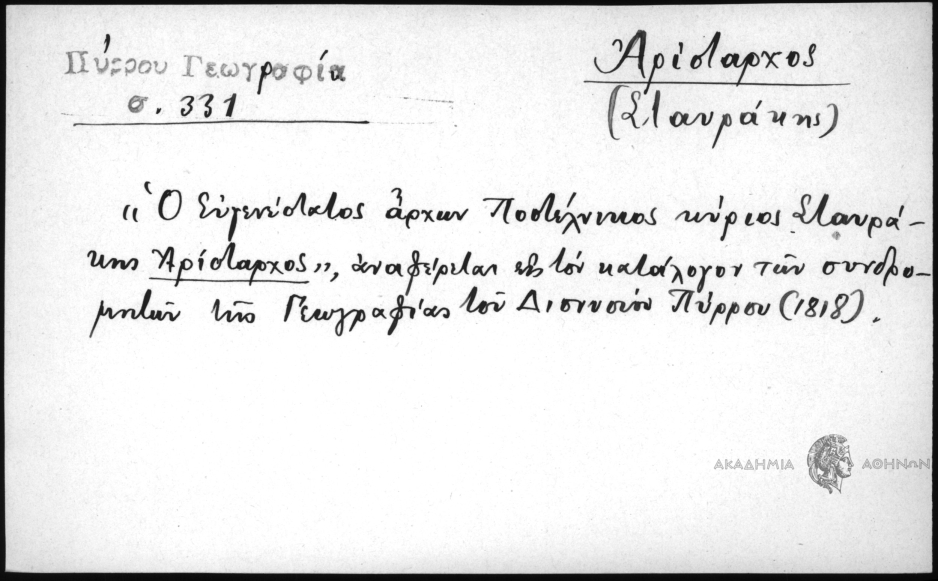 Πύρρου Γεωγραφία
σ. 331
Ἀρίσταρχος
(Σταυράκης)
"Ὁ Εὐγενέστατος ἄρχων Ποστέλνικος κύριος Σταυρά-
κης Ἀρίσταρχος", ἀναφέρεται εἰς τὸν κατάλογον τῶν συνδρο-
μητῶν τῆς Γεωγραφίας τοῦ Διονυσίου Πύρρου (1818).
ΑΚΑΔΗΜΙΑ ΑΘΗΝΩΝ